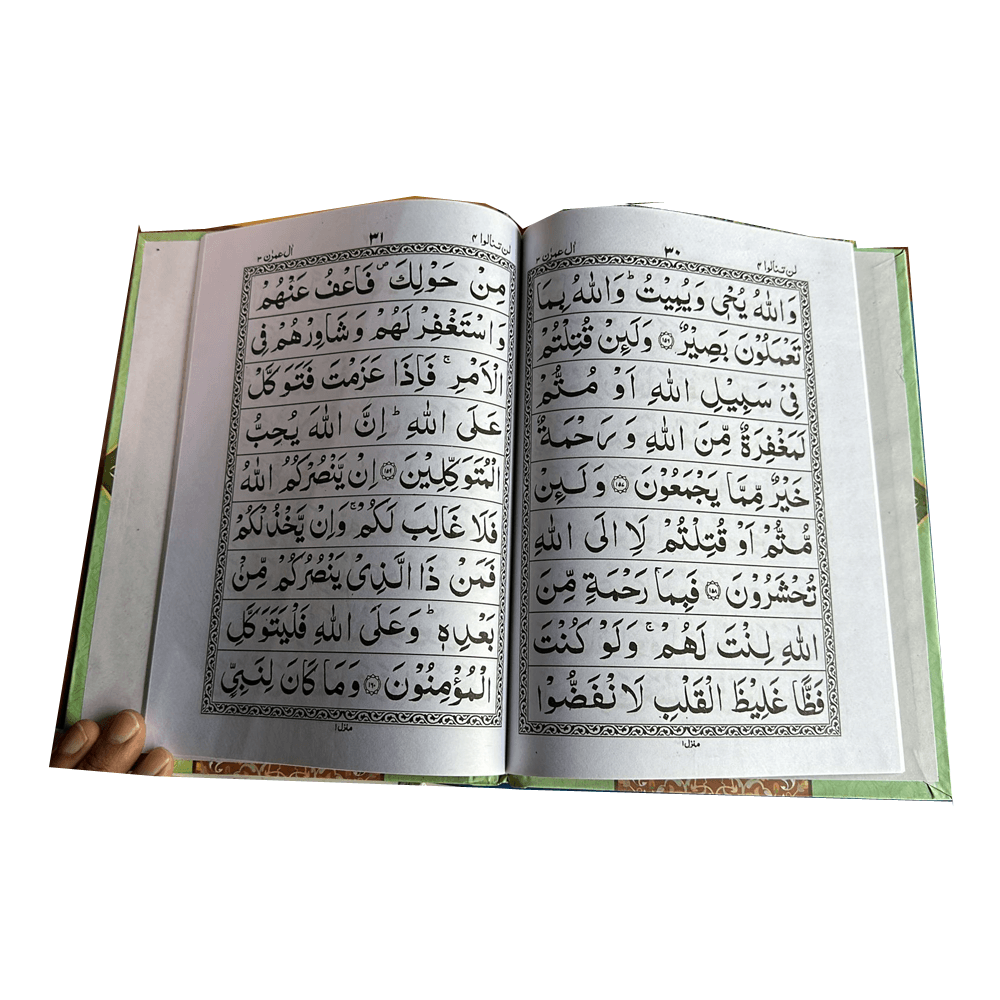 لن تنالوا ۴
۳۰
اٰل عمرٰن ۳
وَاللّٰهُ يُحْىٖ وَيُمِيْتُ ؕ وَاللّٰهُ بِمَا
تَعْمَلُوْنَ بَصِيْرٌ ﴿۱۵۶﴾ وَلَئِنْ قُتِلْتُمْ
فِىْ سَبِيْلِ اللّٰهِ اَوْ مُتُّمْ
لَمَغْفِرَةٌ مِّنَ اللّٰهِ وَ رَحْمَةٌ
خَيْرٌ مِّمَّا يَجْمَعُوْنَ ﴿۱۵۷﴾ وَلَئِنْ
مُّتُّمْ اَوْ قُتِلْتُمْ لَا۟ اِلَى اللّٰهِ
تُحْشَرُوْنَ ﴿۱۵۸﴾ فَبِمَا رَحْمَةٍ مِّنَ
اللّٰهِ لِنْتَ لَهُمْ ۚ وَلَوْ كُنْتَ
فَظًّا غَلِيْظَ الْقَلْبِ لَانْفَضُّوْا
منزل ۱
لن تنالوا ۴
۳۱
اٰل عمرٰن ۳
مِنْ حَوْلِكَ ۪ فَاعْفُ عَنْهُمْ
وَاسْتَغْفِرْ لَهُمْ وَشَاوِرْهُمْ فِى
الْاَمْرِ ۚ فَاِذَا عَزَمْتَ فَتَوَكَّلْ
عَلَى اللّٰهِ ؕ اِنَّ اللّٰهَ يُحِبُّ
الْمُتَوَكِّلِيْنَ ﴿۱۵۹﴾ اِنْ يَّنْصُرْكُمُ اللّٰهُ
فَلَا غَالِبَ لَكُمْ ۚ وَاِنْ يَّخْذُلْكُمْ
فَمَنْ ذَا الَّذِىْ يَنْصُرُكُمْ مِّنْۢ
بَعْدِهٖ ؕ وَعَلَى اللّٰهِ فَلْيَتَوَكَّلِ
الْمُؤْمِنُوْنَ ﴿۱۶۰﴾ وَمَا كَانَ لِنَبِىٍّ
منزل ۱